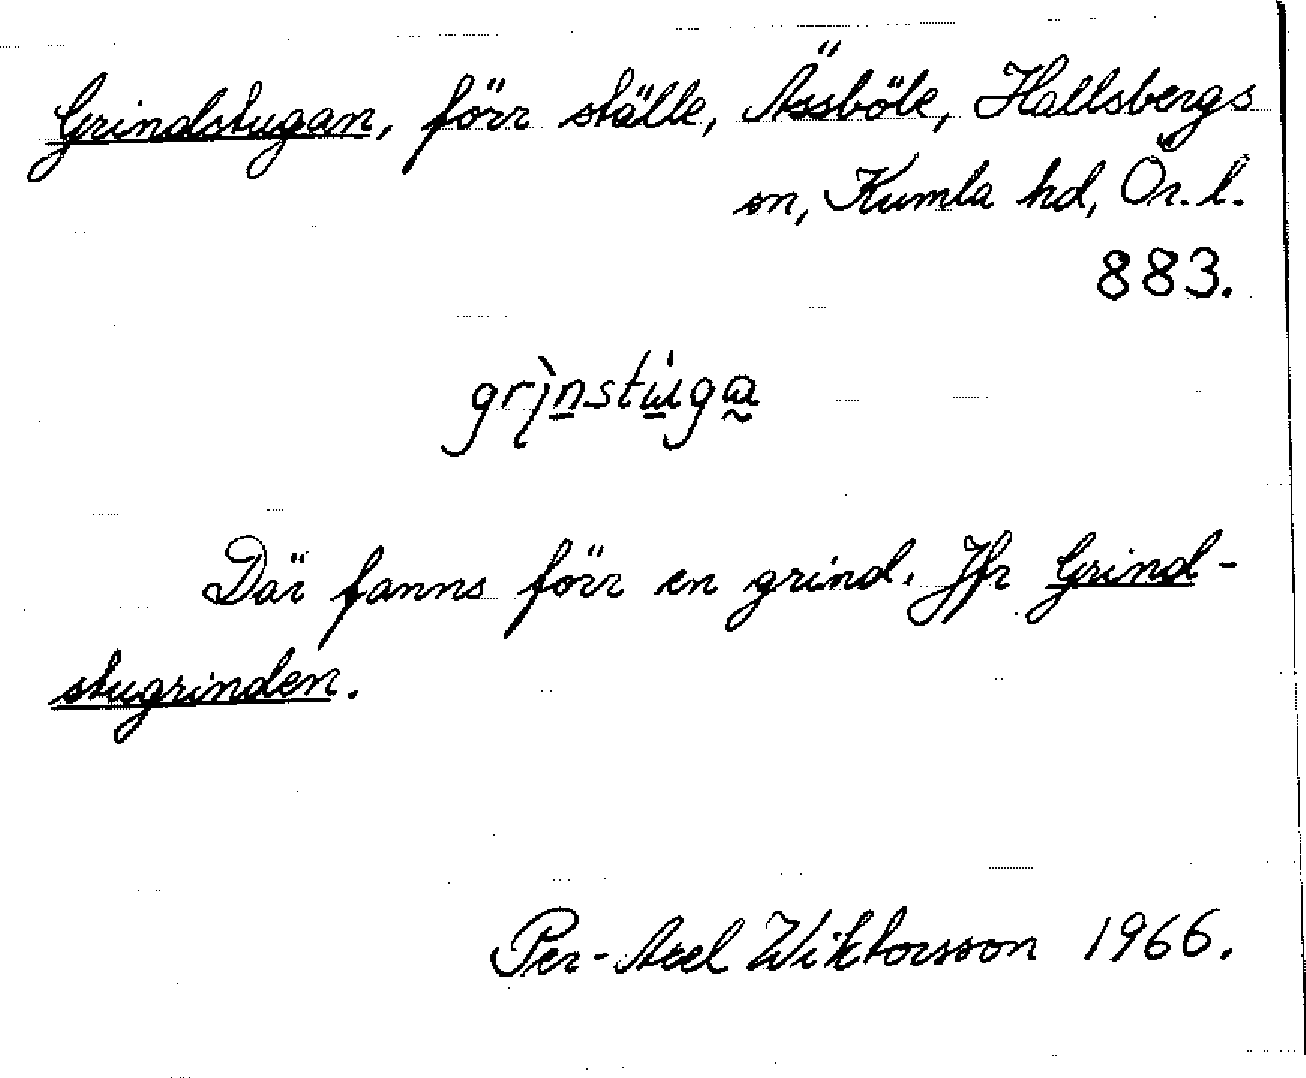 Grindstugan, förr ställe, Ässböle, Hallsbergs
sn, Kumla hd, Ör. l.
883.
grìnstu̇ga
Där fanns förr en grind. Jfr Grind-
stugrinden.
Per-Axel Wiktorsson 1966.